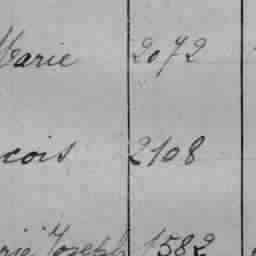 Marie 2072
cois 2108
rie Joseph 1582